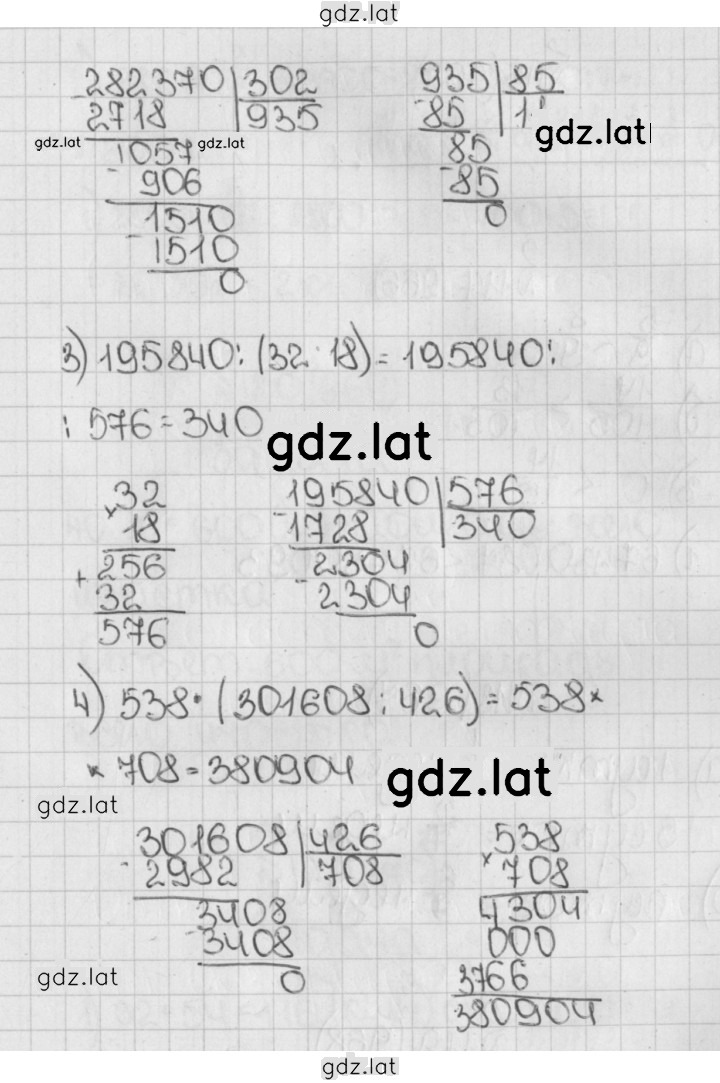 gdz.lat
282370 | 302
2718 | 935
gdz.lat gdz.lat
1057
906
1510
1510
0
935 | 85
85 | 1
gdz.lat
85
85
0
3) 195840 : (32 · 18) = 195840 :
: 576 = 340
gdz.lat
32
× 18
256
+ 32
576
195840 | 576
1728 | 340
2304
2304
0
4) 538 · (301608 : 426) = 538 ×
× 708 = 380904
gdz.lat
gdz.lat
301608 | 426
2982 | 708
3408
3408
0
gdz.lat
538
× 708
4304
000
3766
380904
gdz.lat